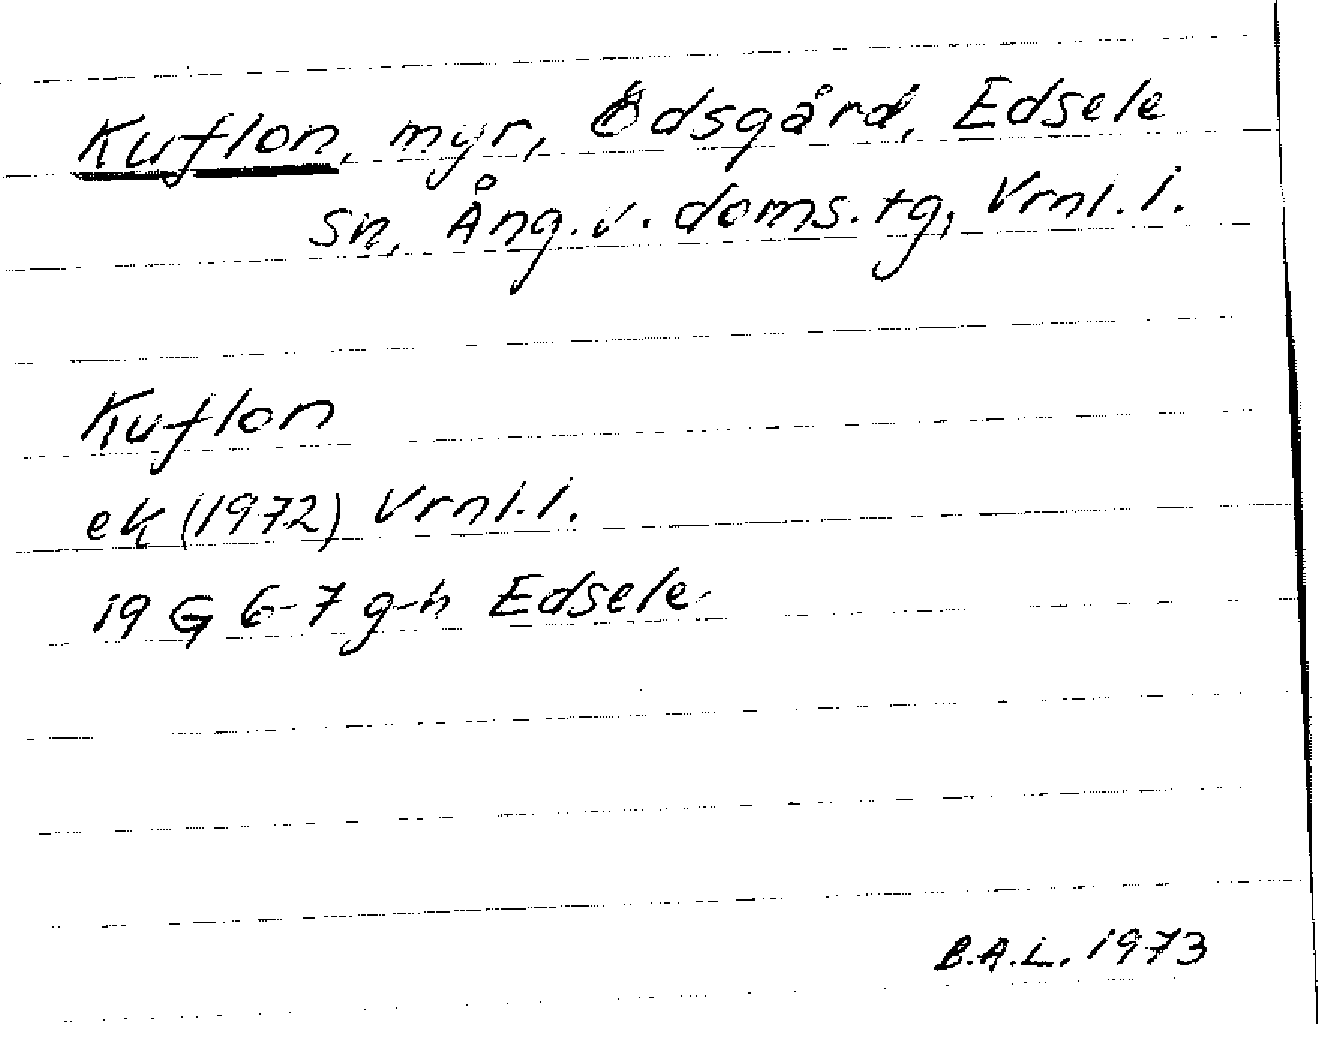 Kuflon, myr, Ödsgård, Edsele
sn, Ång. v. doms. tg, Vrnl. l.
Kuflon
ek (1972) Vrnl. l.
19 G 6-7 g-h Edsele
B.A.L. 1973